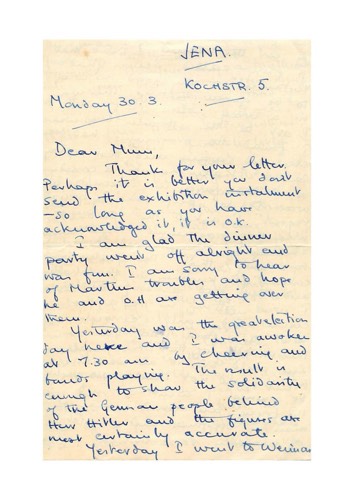 JENA.
KOCHSTR. 5.
Monday 30. 3.
Dear Mum,
Thank for your letter.
Perhaps it is better you don't
send the exhibition instalment
- so long as you have
acknowledged it, it is O.K.
I am glad the dinner
party went off alright and
was fun. I am sorry to hear
of Martins troubles and hope
he and O.H are getting over
them.
Yesterday was the great election
day here and I was awoken
at 7.30 am by cheering and
bands playing. The result is
enough to show the solidarity
of the German people behind
Herr Hitler and the figures are
most certainly accurate.
Yesterday I went to Weimar